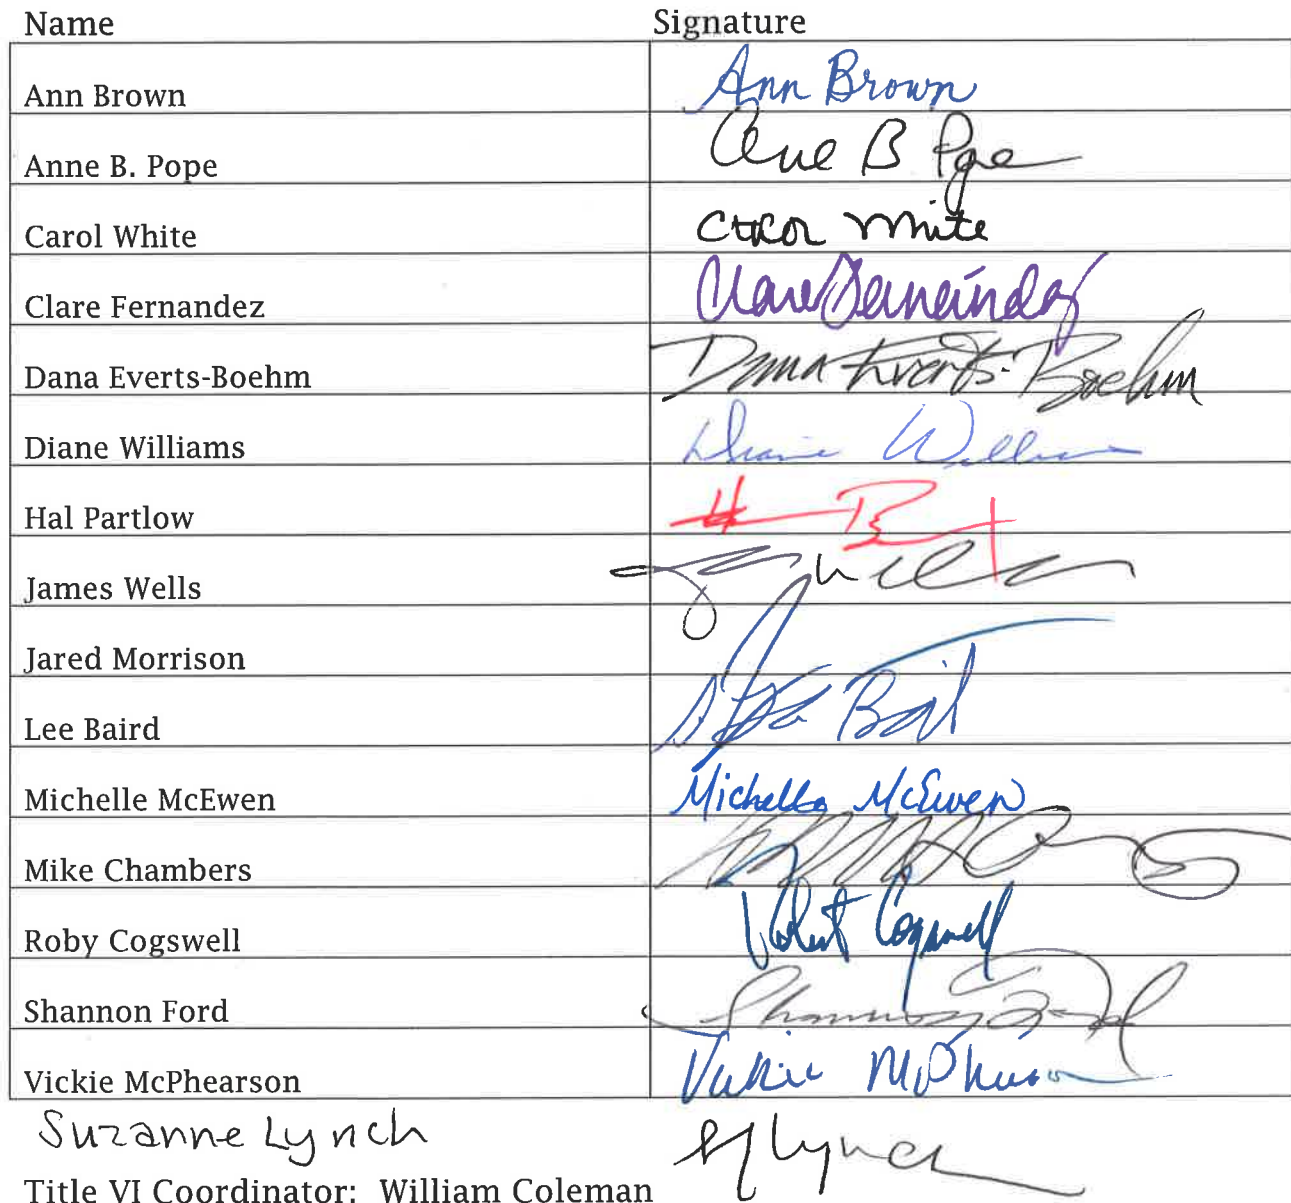 Name Signature
Ann Brown Ann Brown
Anne B. Pope Anne B Pope
Carol White Carol White
Clare Fernandez Clare Fernández
Dana Everts-Boehm Dana Everts-Boehm
Diane Williams Diane Williams
Hal Partlow
James Wells Wells
Jared Morrison
Lee Baird
Michelle McEwen Michelle McEwen
Mike Chambers
Roby Cogswell Robert Cogswell
Shannon Ford Shannon Ford
Vickie McPhearson Vickie McPhearson
Suzanne Lynch S Lynch
Title VI Coordinator: William Coleman